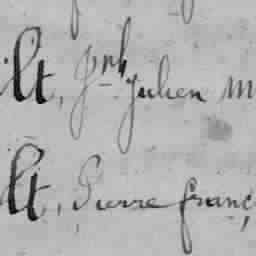 lt, Jph Julien M
lt, Pierre franç